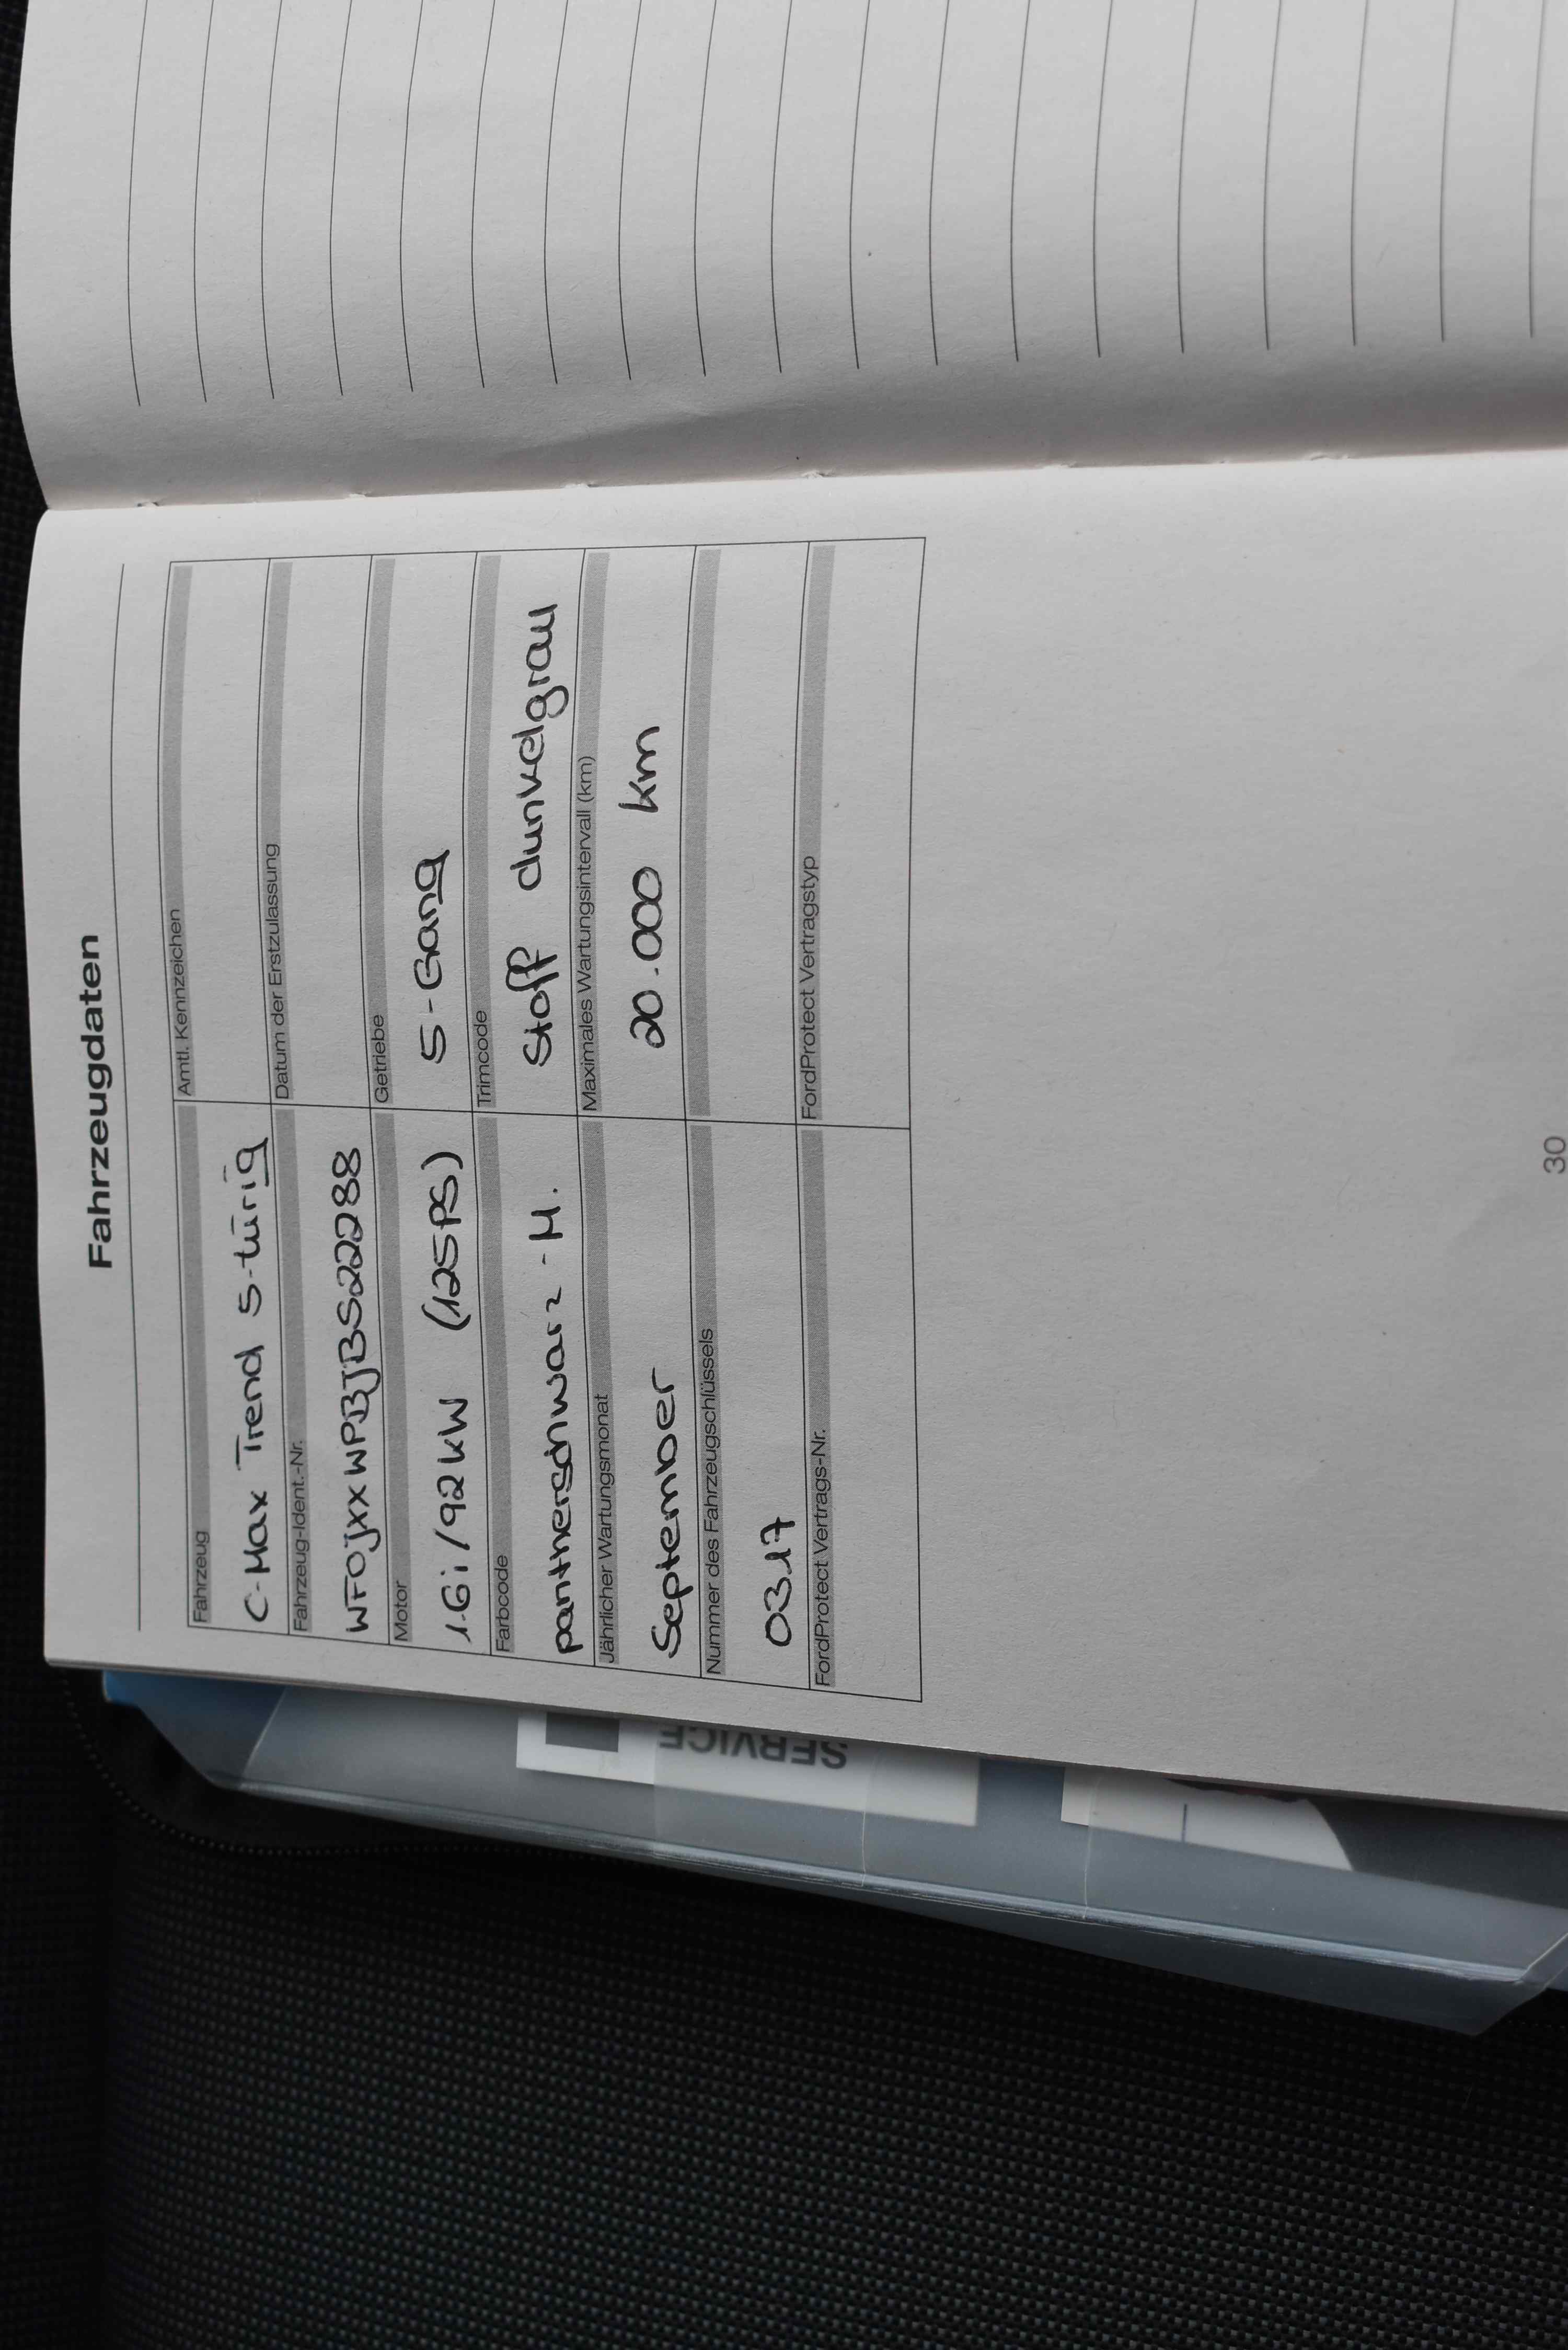 Fahrzeugdaten
Fahrzeug
Amtl. Kennzeichen
C-Max Trend 5-türig
Fahrzeug-Ident.-Nr.
Datum der Erstzulassung
WF0JXXWPBJBS22288
Motor
Getriebe
1.6i/92kW (125PS)
5-Gang
Farbcode
Trimcode
pantherschwarz-M.
Stoff dunkelgrau
Jährlicher Wartungsmonat
Maximales Wartungsintervall (km)
September
20.000 km
Nummer des Fahrzeugschlüssels
0317
FordProtect Vertrags-Nr.
FordProtect Vertragstyp
30
SERVICE